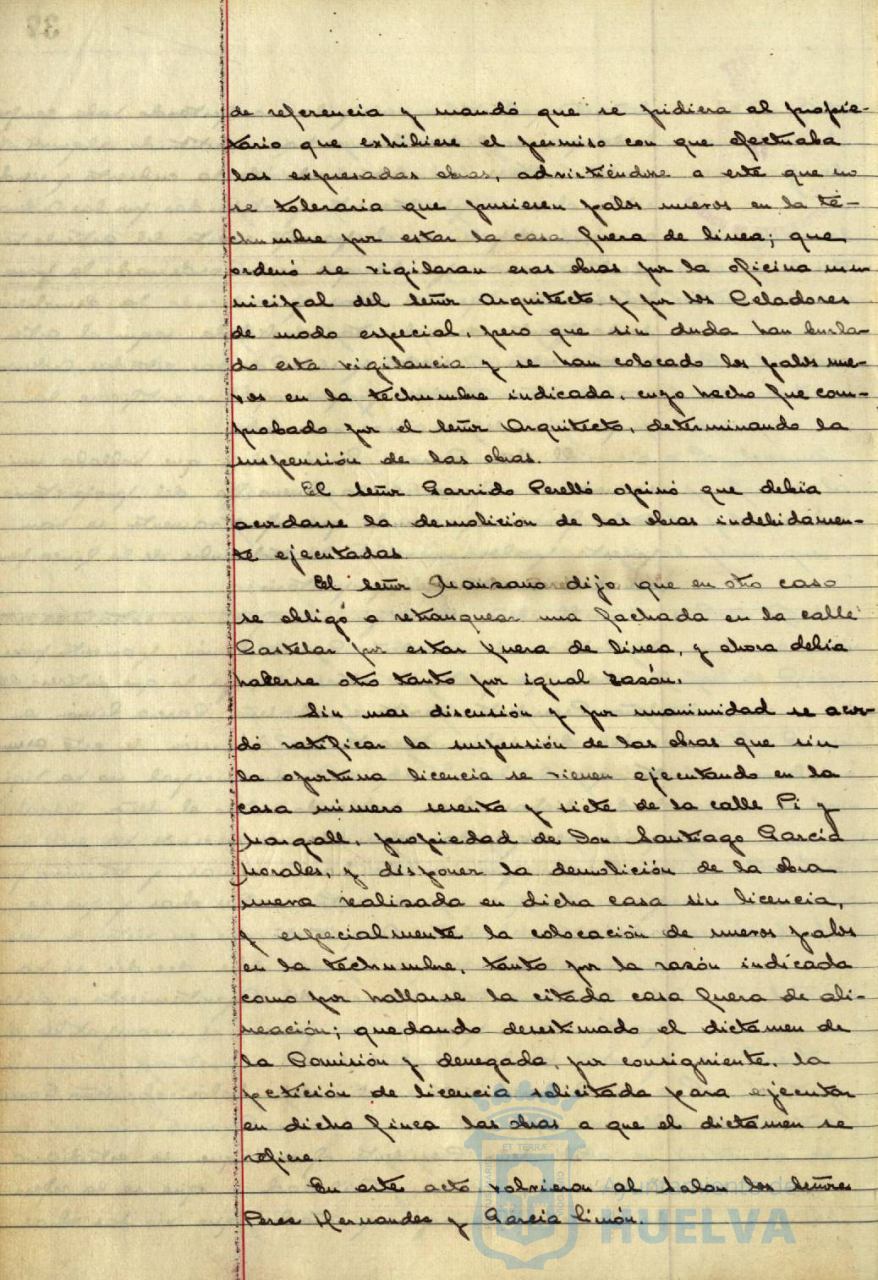 de referencia y mandó que se pidiera al propie-
tario que exhibiese el permiso con que efectuaba
las expresadas obras, advirtiéndose a este que no
se toleraria que pusiesen palos nuevos en la te-
chumbre por estar la casa fuera de linea; que
ordenó se vigilaran esas obras por la oficina mu-
nicipal del señor Arquitecto y por los Celadores
de modo especial, pero que sin duda han burla-
do esta vigilancia y se han colocado los palos nue-
vos en la techumbre indicada, cuyo hecho fue com-
probado por el señor Arquitecto, determinando la
suspensión de las obras.
El señor Garrido Perelló opinó que debia
acordarse la demolición de las obras indebidamen-
te ejecutadas
El señor Manzano dijo que en otro caso
se obligó a retranquear una fachada en la calle
Castelar por estar fuera de linea, y ahora debia
hacerse otro tanto por igual razón.
Sin mas discusión y por unanimidad se acor-
dó ratificar la suspensión de las obras que sin
la oportuna licencia se vienen ejecutando en la
casa número sesenta y siete de la calle Pi y
Margall, propiedad de Don Santiago García
Morales, y disponer la demolición de la obra
nueva realizada en dicha casa sin licencia,
y especialmente la colocación de nuevos palos
en la techumbre, tanto por la razón indicada
como por hallarse la citada casa fuera de ali-
neación; quedando desestimado el dictamen de
la Comisión y denegada, por consiguiente, la
petición de licencia solicitada para ejecutar
en dicha finca las obras a que el dictamen se
refiere.
En este acto volvieron al Salon los señores
Perez Hernandez y García Limón.
HUELVA